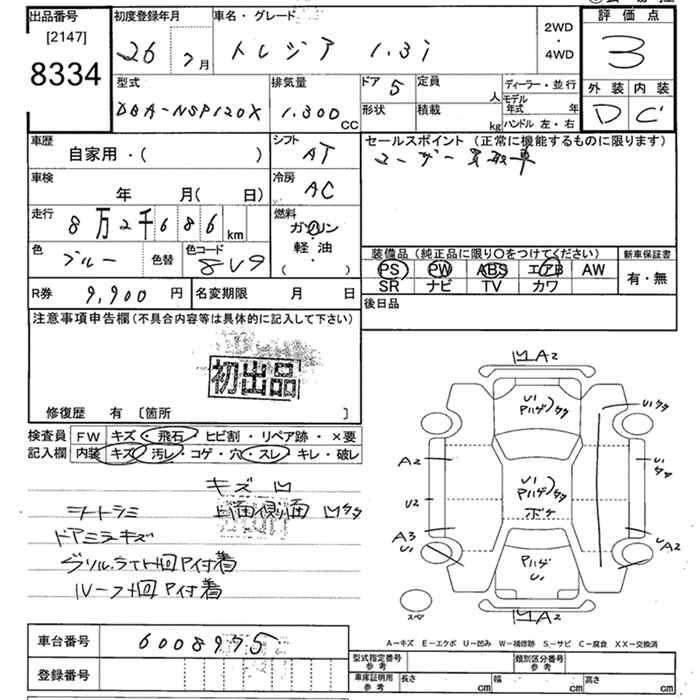 出品番号 初度登録年月 車名・グレード 評価点
[2147]
8334
26 7月 トレジア 1.3i 2WD・4WD 3
型式 排気量 ドア 5 定員 人 ディーラー・並行 外装 内装
DBA-NSP120X 1.300 CC 形状 積載 kg モデル年式 年 D C
ハンドル 左・右
車歴 シフト セールスポイント (正常に機能するものに限ります)
自家用・( ) AT ユーザー買取車
車検 冷房
年 月( 日) AC
走行 燃料
8万2千686km ガソリン
軽油
( )
色 ブルー 色替 色コード 8V9
装備品 (純正品に限り○をつけてください) 新車保証書
PS PW ABS エアB AW 有・無
SR ナビ TV カワ
R券 9,900円 名変期限 月 日 後日品
注意事項申告欄(不具合内容等は具体的に記入して下さい)
初出品
修復歴 有 〔箇所 〕
検査員 FW キズ・飛石・ヒビ割・リペア跡・×要
記入欄 内装 キズ・汚レ・コゲ・穴・スレ・キレ・破レ
キズ 凹
シートシミ
ドアミラーキズ
グリル、ライト回アイ付着
ルーフ回アイ付着
凹A2
U1
アハゲ
U1
A2
U1
アハゲ
U2
ボケ
A3
U1
アハゲ
U1
UA2
凹A2
スペア
A−キズ E−エクボ U−凹み W−補修跡 S−サビ C−腐食 XX−交換済
車台番号 6008975
登録番号
型式指定番号 参考 類別区分番号 参考
車庫証明用 参考 長さ cm 幅 cm 高さ cm